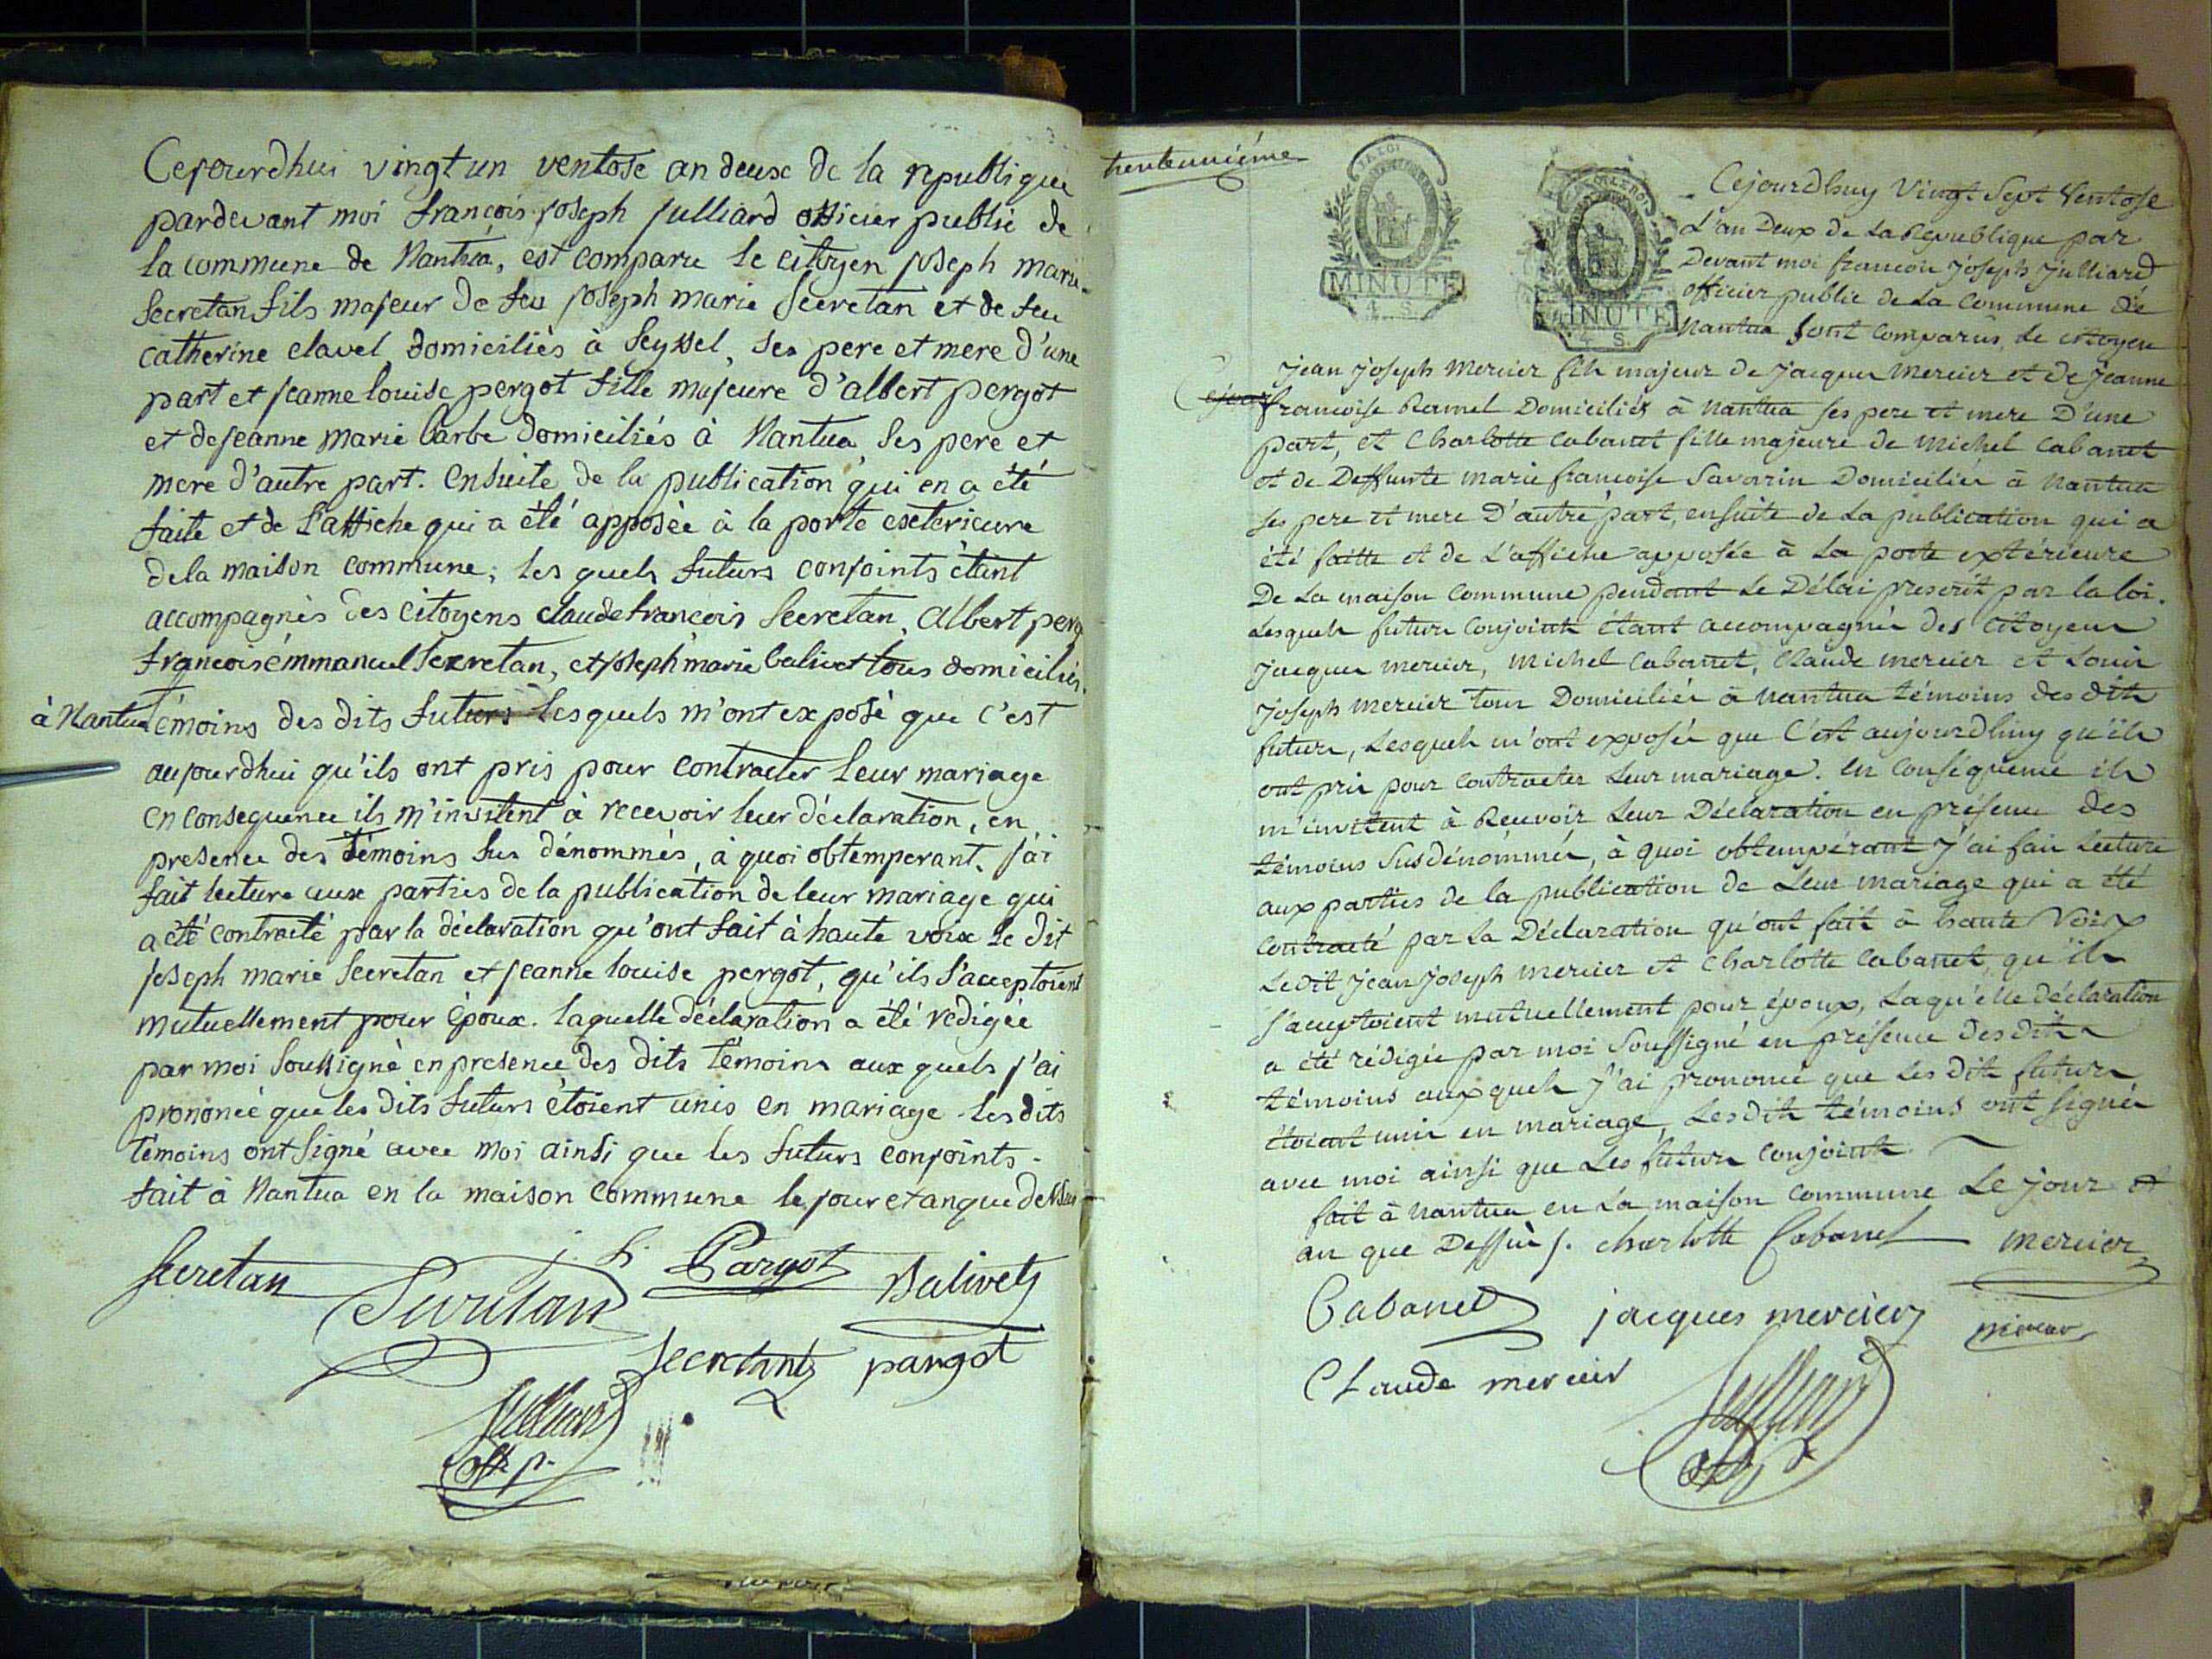 Cejourdhui vingt un ventose an deuxe de la republique
pardevant moi françois joseph julliard officier public de
la commune de Nantua, est comparu le citoyen joseph marie
Secretan fils majeur de feu joseph marie Secretan et de feu
catherine clavel domiciliès à Seyssel, Ses pere et mere d'une
part et jeanne louise pergot fille majeure d'albert pergot
et de jeanne marie barbe domiciliés à Nantua, Ses pere et
mere d'autre part. ensuite de la publication qui en a été
faite et de l'affiche qui a été apposèe à la porte exeterieure
de la maison commune; les quels futurs conjoints étant
accompagnès des citoyens claude françois Secretan, albert perg
françois emmanuel Secretan, et joseph marie balivet tous domiciliés
à Nantua témoins des dits futurs lesquels m'ont exposè que c'est
aujourdhui qu'ils ont pris pour contracter leur mariage
en consequence ils m'invitent à recevoir leur déclaration, en
presence des témoins Sus dénommès, à quoi obtemperant, j'ai
fait lecture aux parties de la publication de leur mariage qui
a été contracté par la déclaration qu'ont fait à haute voix le dit
joseph marie Secretan et jeanne louise pergot, qu'ils S'acceptoient
mutuellement pour époux. laquelle déclaration a été redigée
par moi Soussignè en presence des dits témoins aux quels j'ai
prononcé que les dits futurs étoient unis en mariage les dits
témoins ont Signé avec moi ainsi que les futurs conjoints.
fait à Nantua en la maison commune le jour et an que dessus
Secretan Secretan j. L. Pargot Balivet
Secretant pargot
Julliard
off. p.
trenteunième
MINUTE
4. S.
LA LOI
MINUTE
4. S.
Cejourdhuy Vingt Sept Ventose
L'an Deux de La Republique par
Devant moi francois Joseph Julliard
officier public de La Commune de
Nantua Sont Comparus, Le citoyen
Jean Joseph Mercier fils majeur de Jacques Mercier et de Jeanne
Cejour francoise Ramel Domiciliés à Nantua ses pere et mere D'une
part, et Charlotte Cabanet fille majeure de Michel Cabanet
et de Deffunte Marie francoise Savarin Domiciliés à Nantua
ses pere et mere D'autre part, ensuite de La publication qui a
été faitte et de L'affiche apposée à La porte extérieure
De La maison Commune pendant Le Délai prescrit par la loi.
Lesquels futurs Conjoints étant accompagnés des Citoyens
Jacques Mercier, Michel Cabanet, Claude Mercier et Louis
Joseph Mercier tous Domiciliés à Nantua témoins des dits
futurs, Lesquels m'ont exposés que C'est aujourdhuy qu'ils
ont pris pour Contracter Leur mariage. en Conséquence ils
m'invitent à Recevoir Leur Déclaration en présence des
témoins Susdénommés, à quoi obtempérant J'ai fais Lecture
aux parties de la publication de Leur mariage qui a été
Contracté par La Déclaration qu'ont fait à haute Voix
Ledit Jean Joseph Mercier et Charlotte Cabanet, qu'ils
S'acceptoient mutuellement pour époux, Laqu'elle déclaration
a été rédigée par moi Soussigné en présence Desdits
témoins auxquels J'ai prononcé que Les dits futurs
étoient unis en mariage, Lesdits témoins ont signés
avec moi ainsi que Les futurs Conjoints.
fait à Nantua en La maison Commune Le Jour et
an que Dessus. charlotte Cabanet mercier
Cabanet jacques mercier mercier
Claude mercier Julliard
off. p.